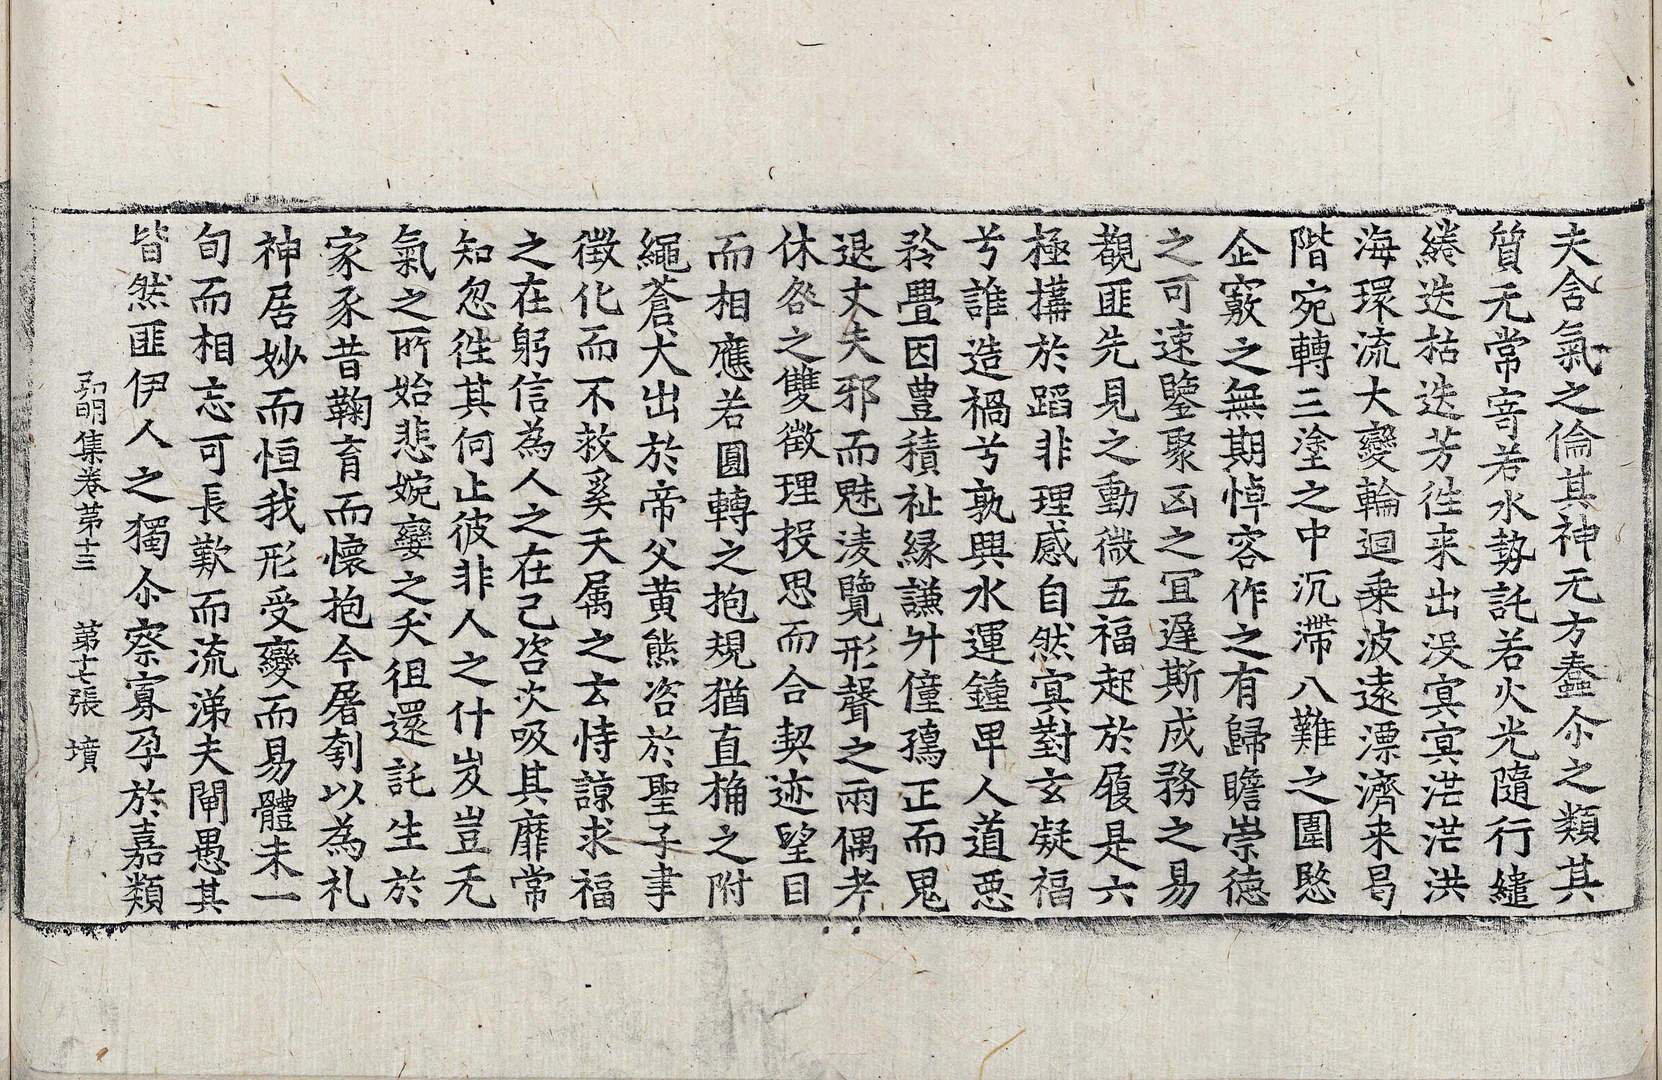 夫含氣之倫其神无方蠢尒之類其
質无常寄若水勢託若火光隨行繾
綣迭枯迭芳徃来出没㝠㝠茫茫洪
海環流大變輪迴乗波逺漂濟来曷
階宛轉三塗之中沉滯八難之圍愍
企竅之無期悼容作之有歸瞻崇德
之可速鑒聚凶之冝遅斯成務之易
觀匪先見之動微五福起於履是六
極搆於蹈非理感自然㝠對玄凝福
兮誰造禍兮孰興水運鍾卑人道惡
矜疊因豊積祉緣謙升僮孺正而鬼
退丈夫邪而魅淩覽形聲之兩偶考
休咎之雙徵理投思而合契迹望目
而相應若圓轉之抱規猶直桷之附
繩蒼犬出於帝父黄熊咨於聖子聿
徵化而不救奚天属之玄恃諒求福
之在躬信為人之在己咨次吸其靡常
知忽徃其何止彼非人之什岌豈无
氣之所始悲婉孌之夭徂還託生於
家豕昔鞠育而懷抱今屠刳以為礼
神居妙而恒我形受變而易體未一
旬而相忘可長歎而流涕夫闡愚其
皆然匪伊人之獨尒察寡孕於嘉類
弘明集卷苐十三 苐十七張 墳